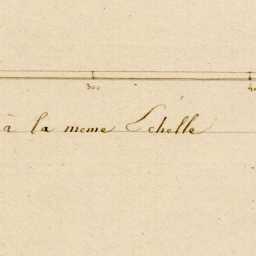 300
à la meme Echelle